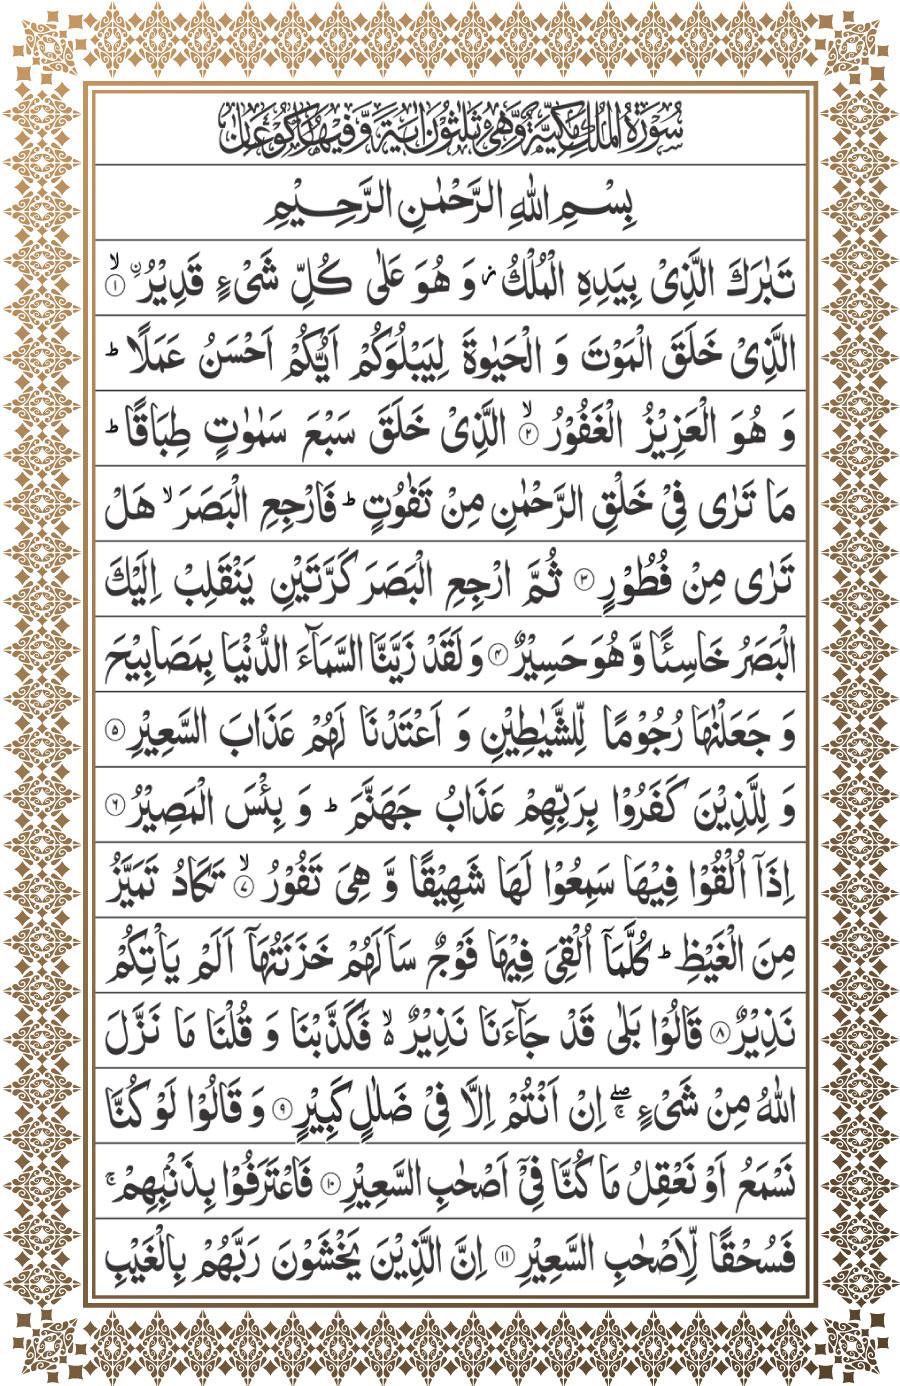 سُوْرَةُ الْمُلْكِ مَكِّيَّةٌ وَّهِيَ ثَلٰثُوْنَ اٰيَةً وَّفِيْهَا رُكُوْعَانِ
بِسْمِ اللّٰهِ الرَّحْمٰنِ الرَّحِيْمِ
تَبٰرَكَ الَّذِیْ بِیَدِهِ الْمُلْكُ ؗ وَ هُوَ عَلٰی كُلِّ شَیْءٍ قَدِیْرُ ۙ۝۱
الَّذِیْ خَلَقَ الْمَوْتَ وَ الْحَیٰوةَ لِیَبْلُوَكُمْ اَیُّكُمْ اَحْسَنُ عَمَلًا ؕ
وَ هُوَ الْعَزِیْزُ الْغَفُوْرُ ۙ۝۲ الَّذِیْ خَلَقَ سَبْعَ سَمٰوٰتٍ طِبَاقًا ؕ
مَا تَرٰی فِیْ خَلْقِ الرَّحْمٰنِ مِنْ تَفٰوُتٍ ؕ فَارْجِعِ الْبَصَرَ ۙ هَلْ
تَرٰی مِنْ فُطُوْرٍ ۝۳ ثُمَّ ارْجِعِ الْبَصَرَ كَرَّتَیْنِ یَنْقَلِبْ اِلَیْكَ
الْبَصَرُ خَاسِئًا وَّ هُوَ حَسِیْرٌ ۝۴ وَ لَقَدْ زَیَّنَّا السَّمَآءَ الدُّنْیَا بِمَصَابِیْحَ
وَ جَعَلْنٰهَا رُجُوْمًا لِّلشَّیٰطِیْنِ وَ اَعْتَدْنَا لَهُمْ عَذَابَ السَّعِیْرِ ۝۵
وَ لِلَّذِیْنَ كَفَرُوْا بِرَبِّهِمْ عَذَابُ جَهَنَّمَ ؕ وَ بِئْسَ الْمَصِیْرُ ۝۶
اِذَاۤ اُلْقُوْا فِیْهَا سَمِعُوْا لَهَا شَهِیْقًا وَّ هِیَ تَفُوْرُ ۙ۝۷ تَكَادُ تَمَیَّزُ
مِنَ الْغَیْظِ ؕ كُلَّمَاۤ اُلْقِیَ فِیْهَا فَوْجٌ سَاَلَهُمْ خَزَنَتُهَاۤ اَلَمْ یَاْتِكُمْ
نَذِیْرٌ ۝۸ قَالُوْا بَلٰی قَدْ جَآءَنَا نَذِیْرٌ ۙ۬ فَكَذَّبْنَا وَ قُلْنَا مَا نَزَّلَ
اللّٰهُ مِنْ شَیْءٍ ۖۚ اِنْ اَنْتُمْ اِلَّا فِیْ ضَلٰلٍ كَبِیْرٍ ۝۹ وَ قَالُوْا لَوْ كُنَّا
نَسْمَعُ اَوْ نَعْقِلُ مَا كُنَّا فِیْۤ اَصْحٰبِ السَّعِیْرِ ۝۱۰ فَاعْتَرَفُوْا بِذَنْۢبِهِمْ ۚ
فَسُحْقًا لِّاَصْحٰبِ السَّعِیْرِ ۝۱۱ اِنَّ الَّذِیْنَ یَخْشَوْنَ رَبَّهُمْ بِالْغَیْبِ